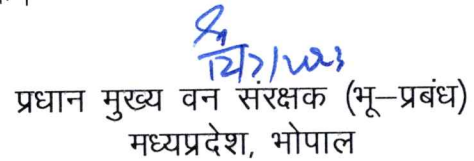 12/7/2023
प्रधान मुख्य वन संरक्षक (भू–प्रबंध)
मध्यप्रदेश, भोपाल